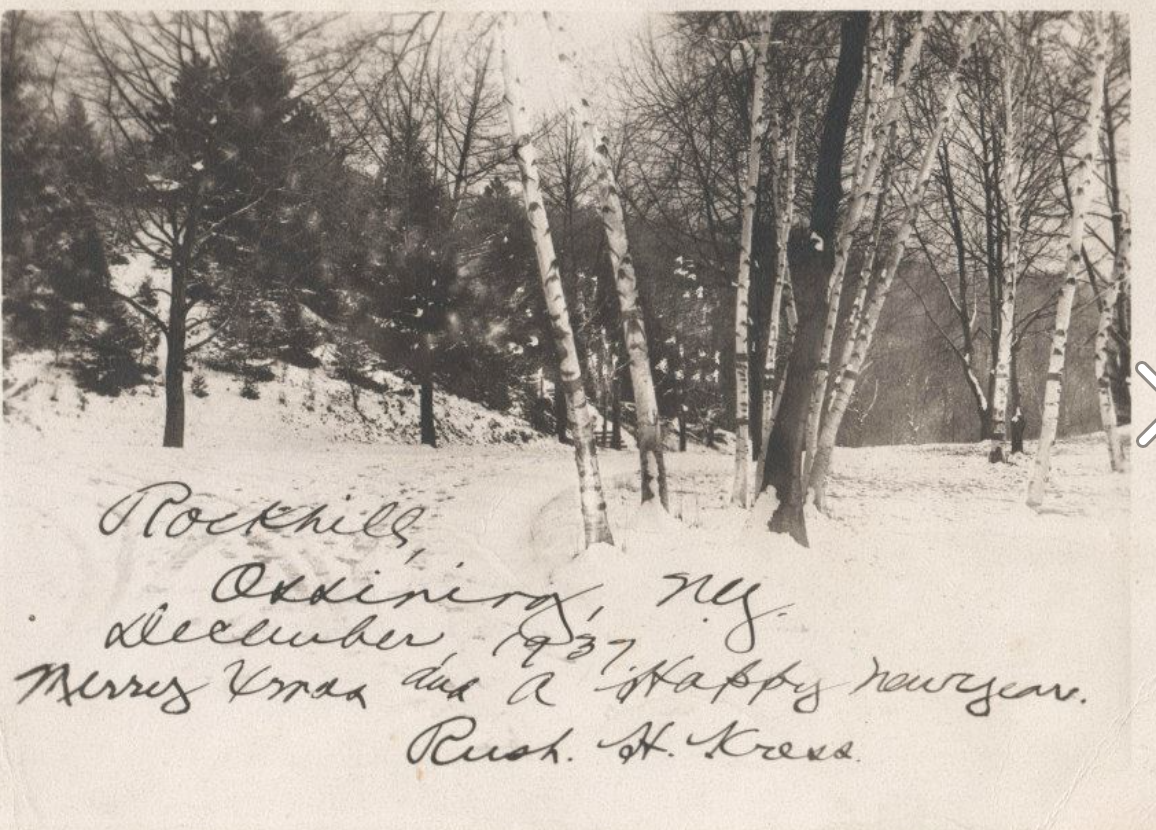 Rockhill,
Ossining, N.Y.
December, 1937.
Merry Xmas and A Happy new year.
Rush. H. Kress.